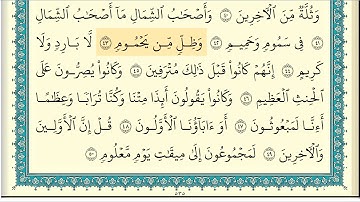 وَثُلَّةٌ مِّنَ ٱلْأَخِرِينَ ٤٠ وَأَصْحَٰبُ ٱلشِّمَالِ مَآ أَصْحَٰبُ ٱلشِّمَالِ
٤١ فِى سَمُومٍ وَحَمِيمٍ ٤٢ وَظِلٍّ مِّن يَحْمُومٍ ٤٣ لَّا بَارِدٍ وَلَا
كَرِيمٍ ٤٤ إِنَّهُمْ كَانُوا۟ قَبْلَ ذَٰلِكَ مُتْرَفِينَ ٤٥ وَكَانُوا۟ يُصِرُّونَ عَلَى
ٱلْحِنثِ ٱلْعَظِيمِ ٤٦ وَكَانُوا۟ يَقُولُونَ أَئِذَا مِتْنَا وَكُنَّا تُرَابًا وَعِظَٰمًا
أَءِنَّا لَمَبْعُوثُونَ ٤٧ أَوَ ءَابَآؤُنَا ٱلْأَوَّلُونَ ٤٨ قُلْ إِنَّ ٱلْأَوَّلِينَ
وَٱلْأَخِرِينَ ٤٩ لَمَجْمُوعُونَ إِلَىٰ مِيقَٰتِ يَوْمٍ مَّعْلُومٍ ٥٠
٥٣٥